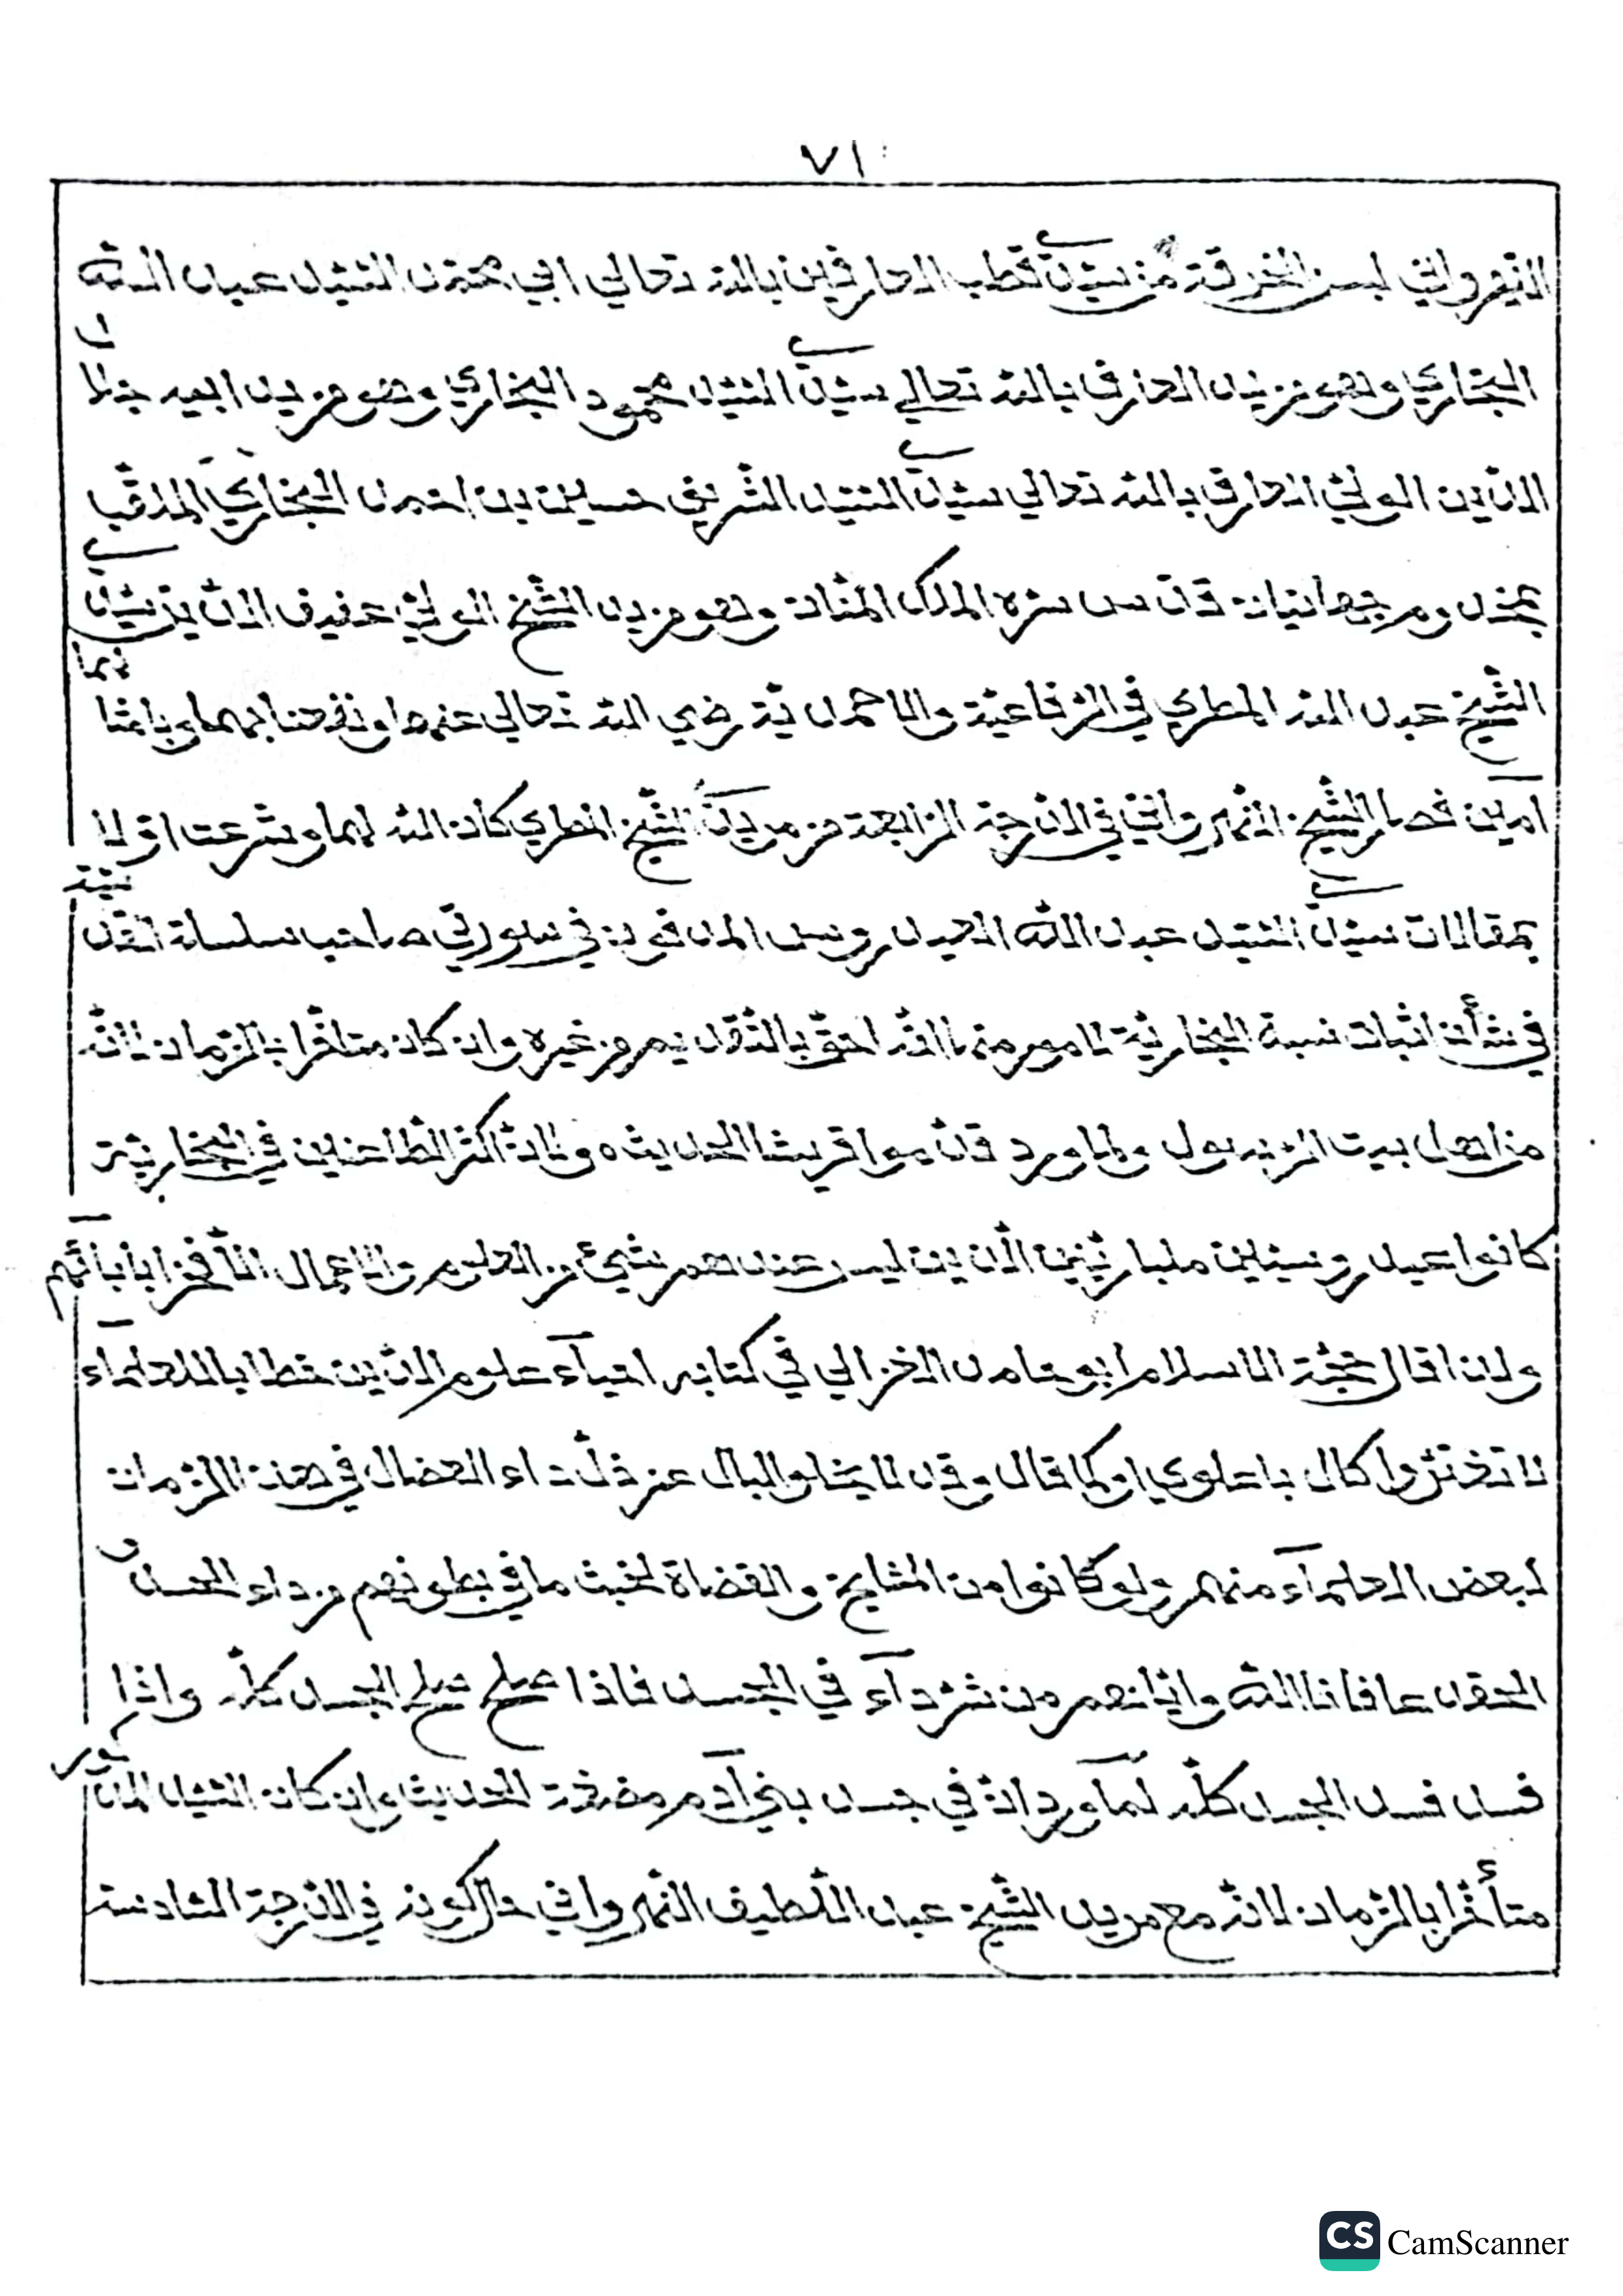 ٧١
النهرواني لبس الخرقة من سيدي قطب العارفين بالله تعالي ابي محمد السيد عبد الله
البخاري وهو مريد العارف بالله تعالي سيدي السيد محمود البخاري وهو مريد ابيه جلال
الدين الولي العارف بالله تعالي سيدي السيد الشريف حسين بن احمد البخاري الملقب
بمخدوم جهانيان قدس سره الملك المنان وهو مريد الشيخ الولي عفيف الدين سيدي
الشيخ عبد الله المطري في الرفاعية والاحمدية رضي الله تعالي عنهما ونفعنا بهما وبامثالهما
آمين فصار الشيخ النهرواني في الدرجة الرابعة من مريدي الشيخ المطري كان الله لهما وشرعت اولا
بمقالات سيدي السيد عبد الله العيدروس المدفون في سورتي صاحب سلسلة القدسية
في شأن اثبات نسبة البخارية لامور منها انه احق بالتقديم من غيره وان كان متاخرا بالزمان لانه
من اهل بيت الرسول ولما ورد قدموا قريشا الحديث ولان اكثر الطاعنين في البخارية
كانوا عيدروسيين مليباريين الذين ليس عندهم شيئ من العلوم والاعمال الا فخرا بآبائهم
ولذا قال حجة الاسلام ابو حامد الغزالي في كتابه احياء علوم الدين خطابا للعلماء
لا تغتروا كال باعلوي او كما قال وقد لا يخلو البال عن ذلك داء العضال في هذا الزمان
لبعض العلمآء منهم ولو كانوا من المشايخ والقضاة لخبث ما في بطونهم من داء الحسد و
الحقد عافانا الله واياهم من شر دآء في الجسد فاذا صلح صلح الجسد كله واذا
فسد فسد الجسد كله لما ورد ان في جسد بني آدم مضغة الحديث وان كان السيد المذكور
متأخرا بالزمان لانه مع مريد الشيخ عبد اللطيف النهرواني حال كونه في الدرجة السادسة
CS CamScanner